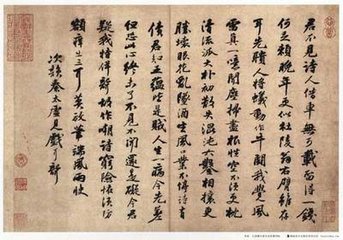 君不見詩人借車無可載留得一錢
何足賴晚年更似杜陵翁右臂雖存
耳先聵人將蟻動作牛鬬我覺風
雷真一噫聞塵掃盡根性空不須更枕
清流派大朴初散失混沌六鑿相攘更
勝壞眼花亂墜酒生風口業不停詩有
債君知五蘊皆是賊人生一病今先差
但恐此心終未了不見不聞還是礙今君
疑我特佯聾故作嘲詩窮險怪須防
額癢出三耳莫放筆端風雨快
次韻秦太虛見戲耳聾